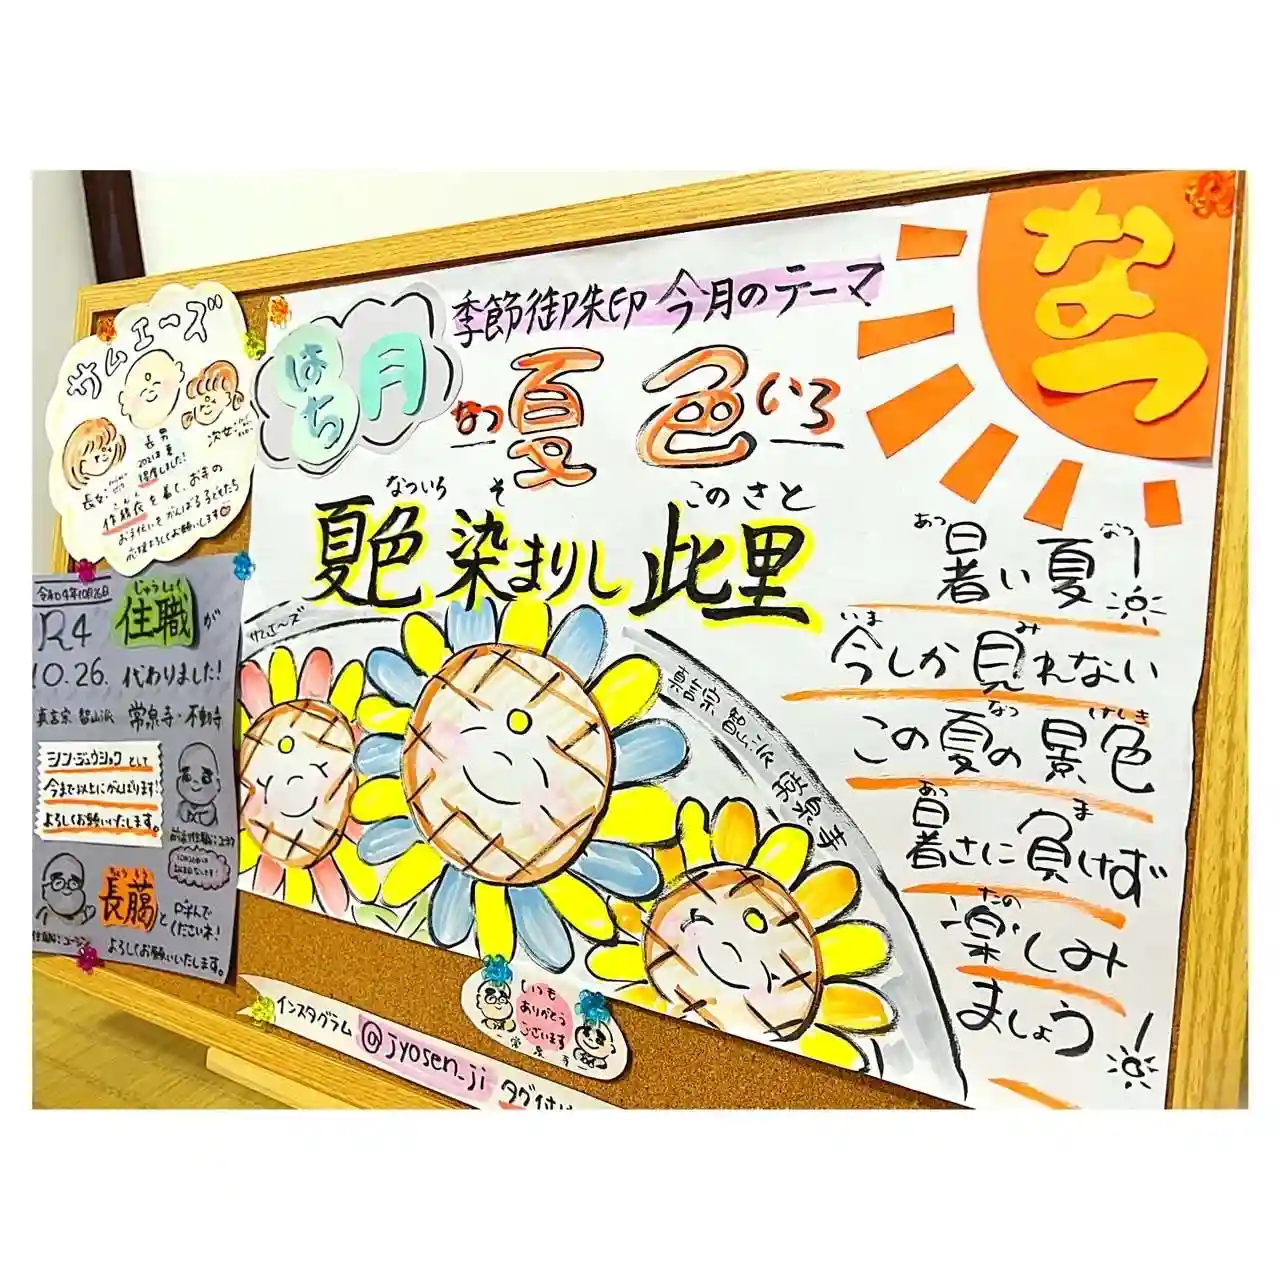 なつ
季節御朱印 今月のテーマ
はち月
なつ夏色いろ
なついろ そ このさと
夏色染まりし此里
あつ なつ
暑い夏!
いま み
今しか見れない
なつ けしき
この夏の景色
あつ ま
暑さに負けず
たの
楽しみ
ましょう!
サムエ〜ズ
真言宗 智山派 常泉寺
サムエ〜ズ
長男
2021年夏
得度しました!
長女
次女
作務衣を着て、お寺の
お手伝いをがんばる子どもたち
応援よろしくお願いします
令和04年10月26日
R4
10.26.
じゅうしょく
住職が
代わりました!
真言宗 智山派 常泉寺・不動寺
シン・ジュウショクとして
今まで以上にがんばります!
よろしくお願いいたします。
と呼んで
くださいネ!
よろしくお願いいたします。
いつも
ありがとう
ございます
常泉寺
インスタグラム @jyosen_ji タグ付け